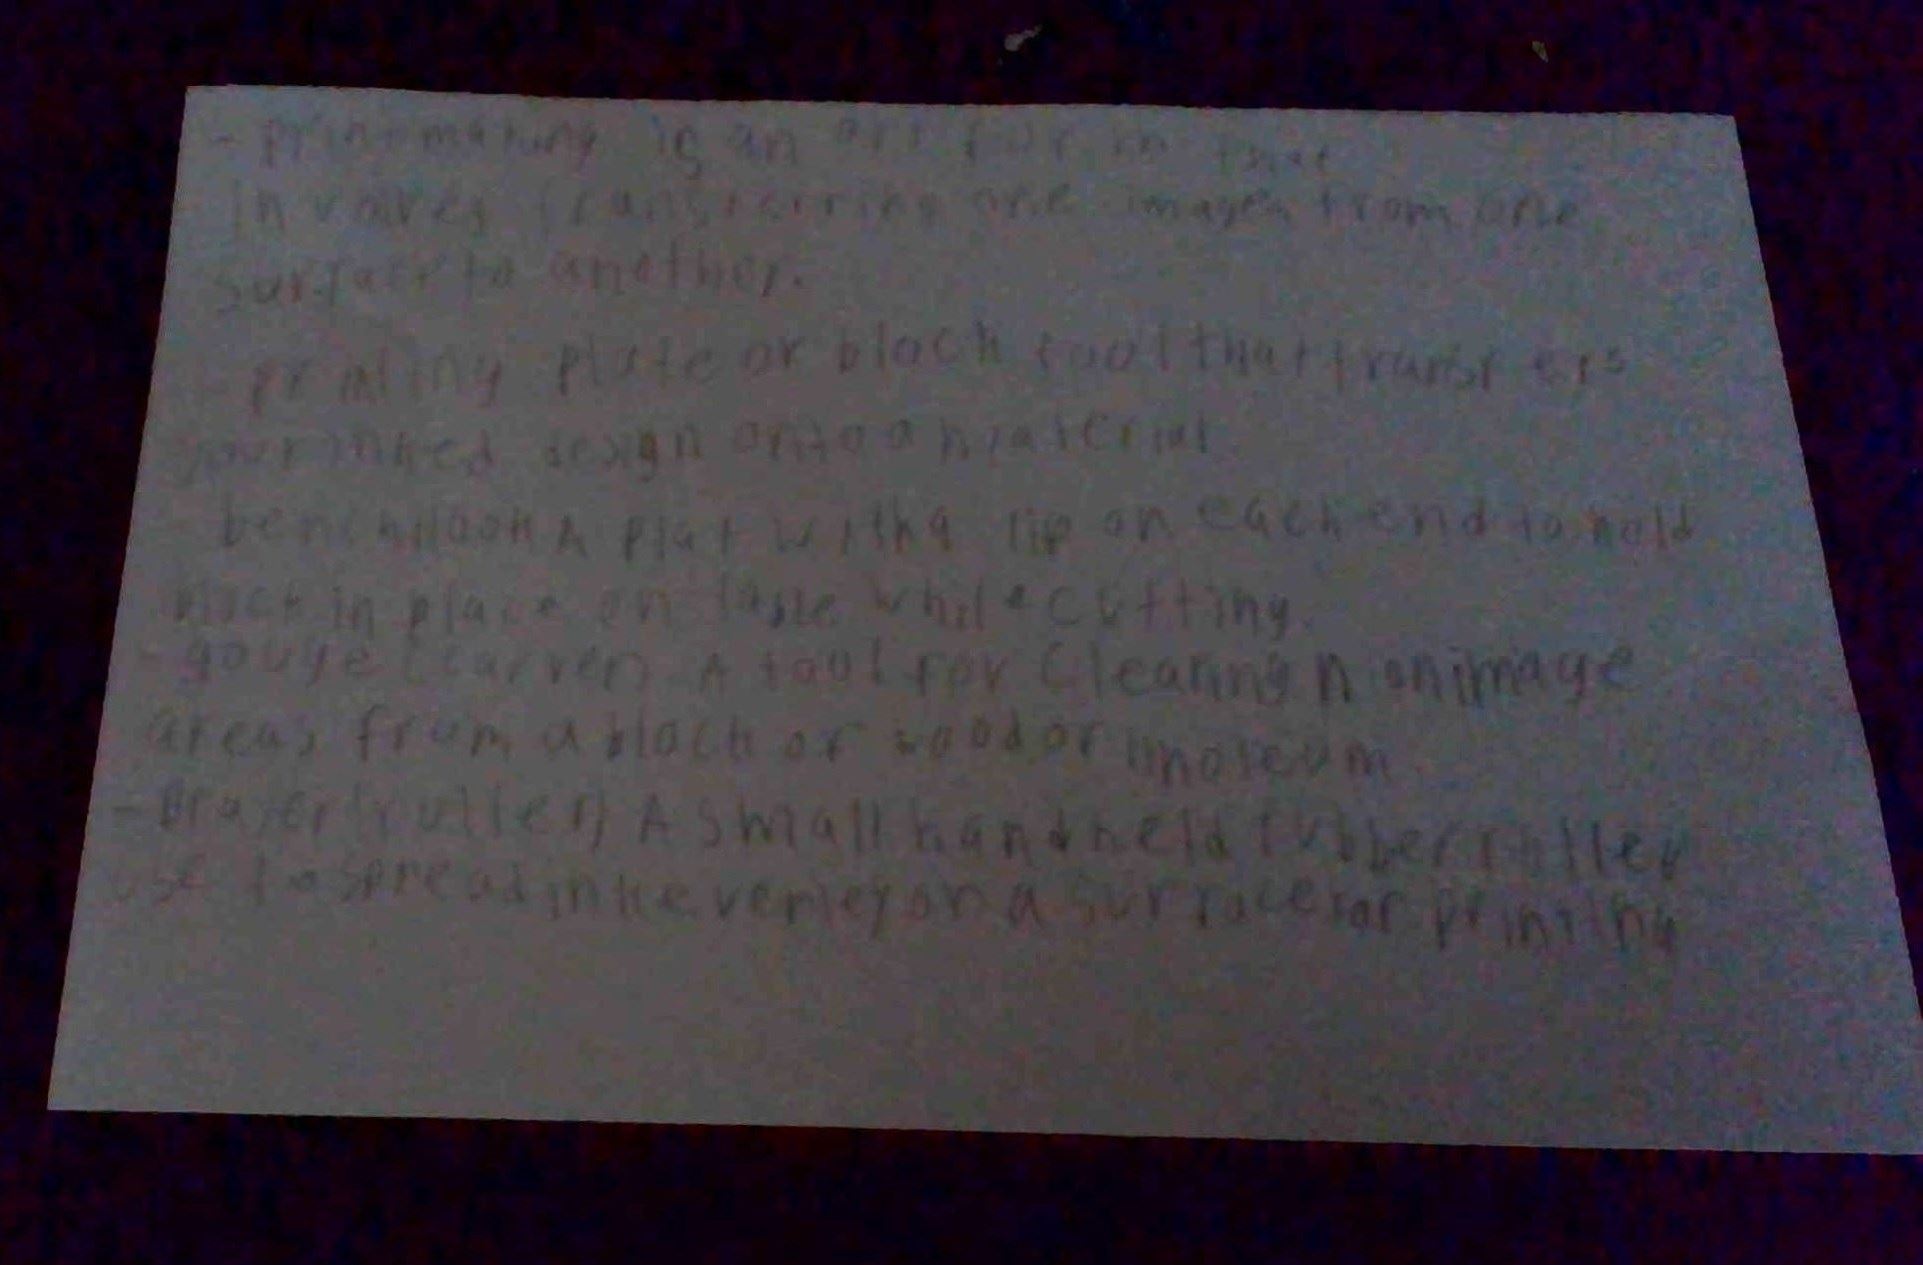 - printmaking is an art form that
involves transferring one images from one
surface to another.
- printing plate or block tool that transfers
your inked design onto a material
- bench hook A plat with a lip on each end to hold
block in place on table while cutting.
- gouge (carver) A tool for Clearing nonimage
areas from a block of wood or linoleum
- Brayer (roller) A small handheld rubber roller
use to spread ink evenley on a surface for printing